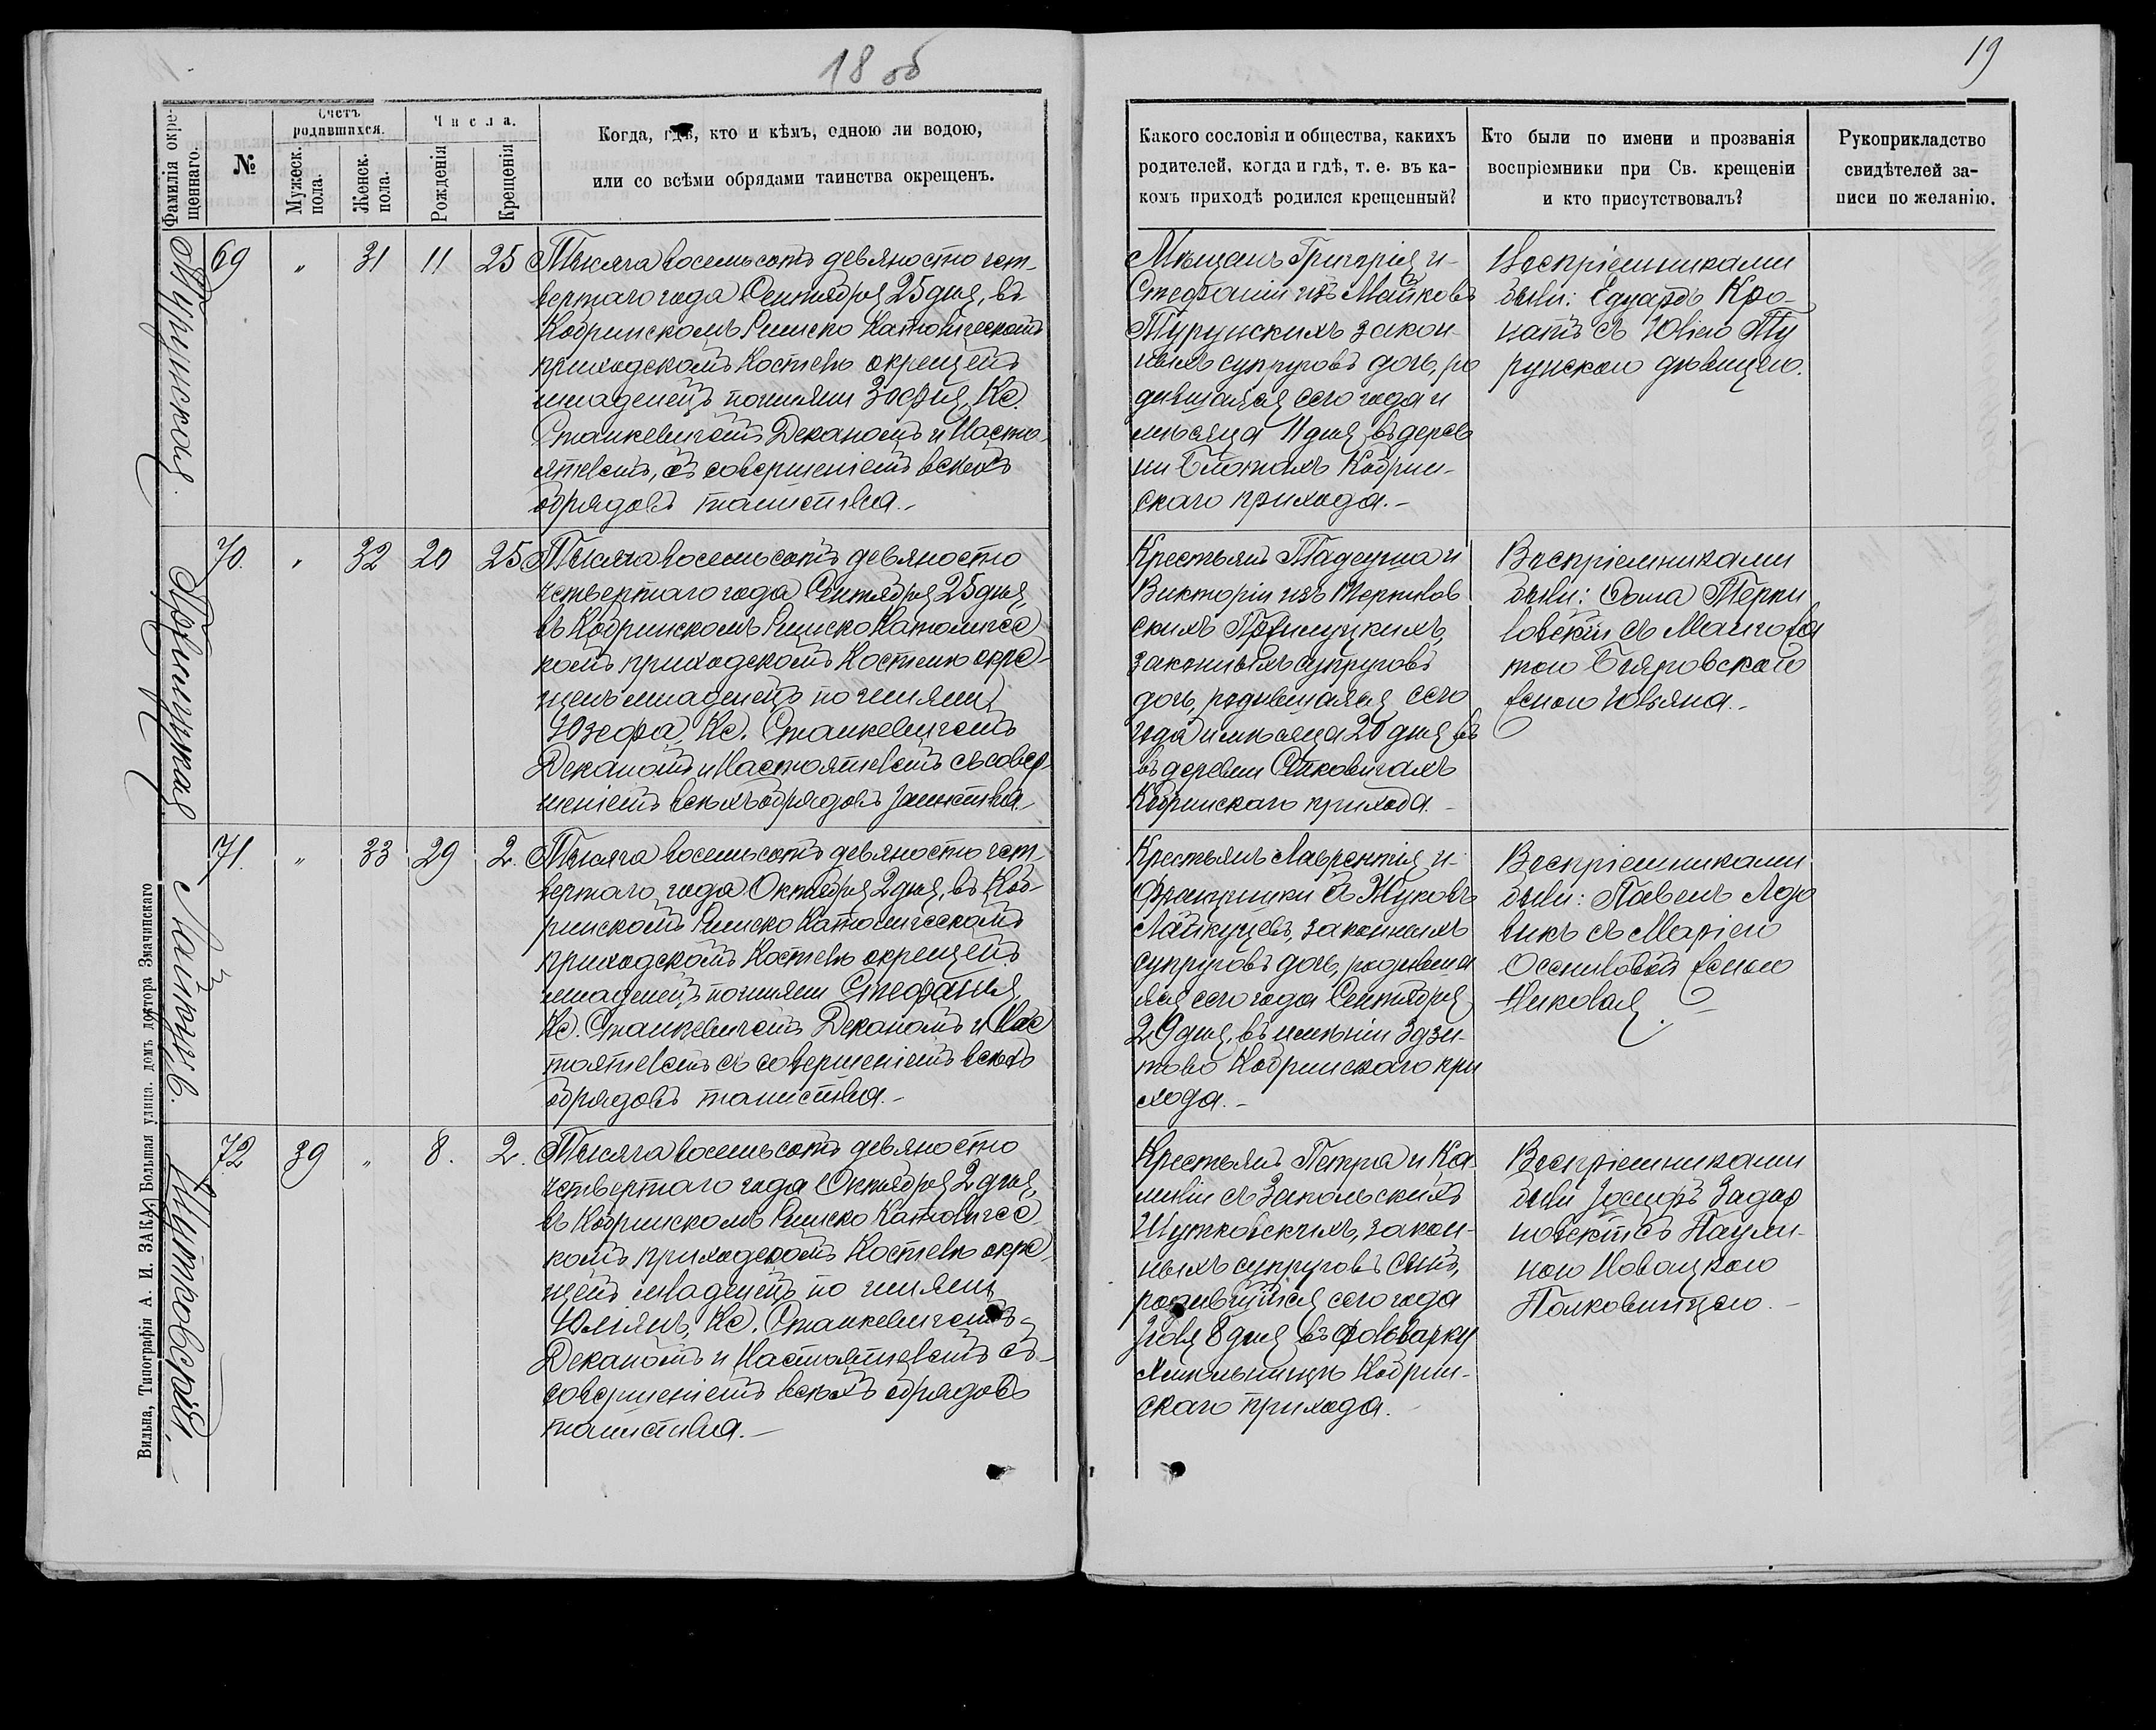 18 об
Фамилія окре-
щеннаго.
№
Счетъ
родившихся.
Мужеск.
пола.
Женск.
пола.
Числа.
Рожденія
Крещенія
Когда, гдѣ, кто и кѣмъ, одною ли водою,
или со всѣми обрядами таинства окрещенъ.
Турунская
69 " 31 11 25
Тысяча восемьсотъ девяносто чет-
вертаго года Сентября 25 дня, въ
Кобринскомъ Римско Католическомъ
приходскомъ Костелѣ окрещенъ
младенецъ по имяни Зофия, Кс.
Станкевичемъ Деканомъ и Насто-
ятелемъ, съ совершеніемъ всѣхъ
обрядовъ таинства.-
70. " 32 20 25
Тысяча восемьсотъ девяносто
четвертаго года Сентября 25 дня,
въ Кобринскомъ Римско Католичес
комъ приходскомъ Костелѣ окре-
щенъ младенецъ по имяни
Юзефа, Кс. Станкевичемъ
Деканомъ и Настоятелемъ съ совер-
шеніемъ всѣхъ обрядовъ таинства.-
Лайкуцъ.
71. " 33 29 2.
Тысяча восемьсотъ девяносто чет-
вертаго года Октября 2 дня, въ Коб-
ринскомъ Римско Католическомъ
приходскомъ Костелѣ окрещенъ
младенецъ по имяни Стефания,
Кс. Станкевичемъ Деканомъ и Нас
тоятелемъ съ совершеніемъ всѣхъ
обрядовъ таинства.-
Шутковскій.-
72 39 " 8. 2.
Тысяча восемьсотъ девяносто
четвертаго года Октября 2 дня,
въ Кобринскомъ Римско Католичес
комъ приходскомъ Костелѣ окре-
щенъ младенецъ по имяни
Юліянъ, Кс. Станкевичемъ-
Деканомъ и Настоятелемъ съ-
совершеніемъ всѣхъ обрядовъ
таинства.-
Вильна, Типографія А. И. ЗАКА, Большая улица. домъ доктора Змачинскаго
19
Какого сословія и общества, какихъ
родителей, когда и гдѣ, т. е. въ ка-
комъ приходѣ родился крещенный?
Кто были по имени и прозванія
воспріемники при Св. крещеніи
и кто присутствовалъ?
Рукоприкладство
свидѣтелей за-
писи по желанію.
Мѣщанъ Григорія и
Стефаніи изъ Майковъ
Турунскихъ закон-
ныхъ супруговъ дочь, ро
дившаяся сего года и
мѣсяца 11 дня въ дерев
ни Блотахъ Кобрин-
скаго прихода.-
Воспріемниками
были: Едуардъ Кро-
патъ съ Юліею Ту
рунскою дѣвицею.
Крестьянъ Тадеуша и
Викторіи изъ
законныхъ супруговъ
дочь, родившаяся сего
года и мѣсяца 20 дня въ
въ деревни
Кобринскаго прихода.-
Воспріемниками
были: Фома
Юльяна.-
Крестьянъ Лаврентія и
Францишки съ Жуковъ
Лайкуцевъ, законныхъ
супруговъ дочь, родивша
яся сего года Сентября
29 дня, въ имѣніи Эдзи-
тово Кобринскаго при
хода.-
Воспріемниками
были: Павелъ
съ Маріею
женою
Николая.-
Крестьянъ Петра и Ка
миліи съ Закольскихъ
Шутковскихъ, закон-
ныхъ супруговъ сынъ,
родившійся сего года
Іюля 8 дня въ фольварку
Кобрин-
скаго прихода.
Воспріемниками
были Іосифъ Задар
новскій съ Паули-
ною Новацкою
Полковницею.-